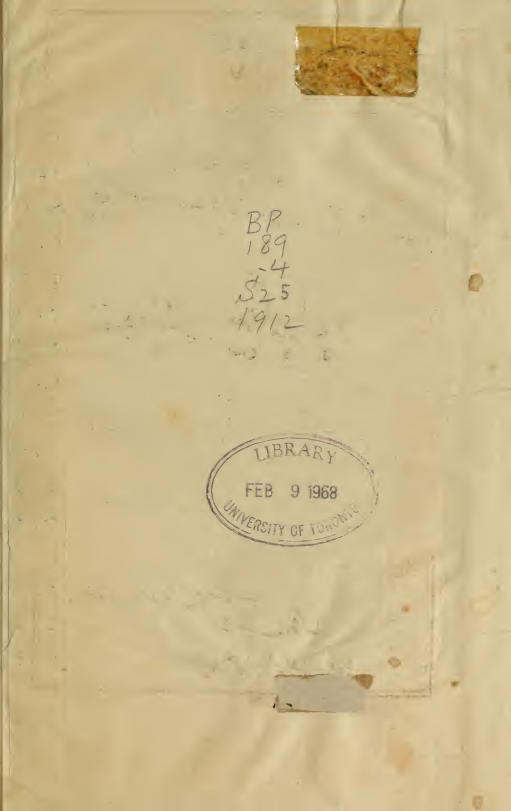 BP
189
.4
S25
1912
LIBRARY
FEB 9 1968
UNIVERSITY OF TORONTO